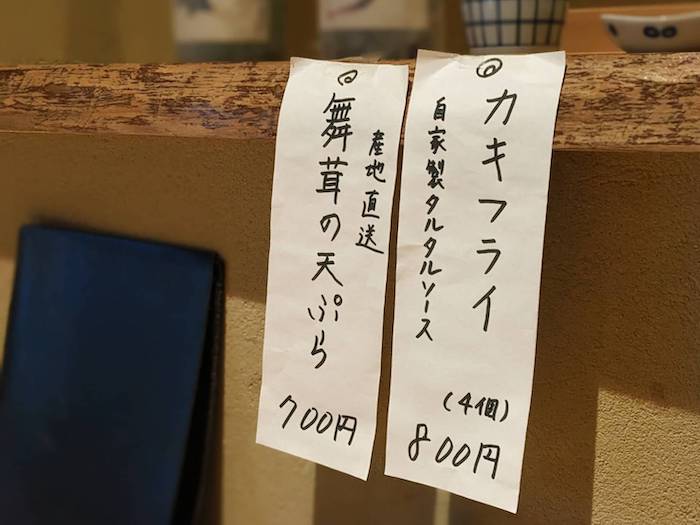 ◎カキフライ
自家製タルタルソース
(4個)
800円
◎舞茸の天ぷら
産地直送
700円